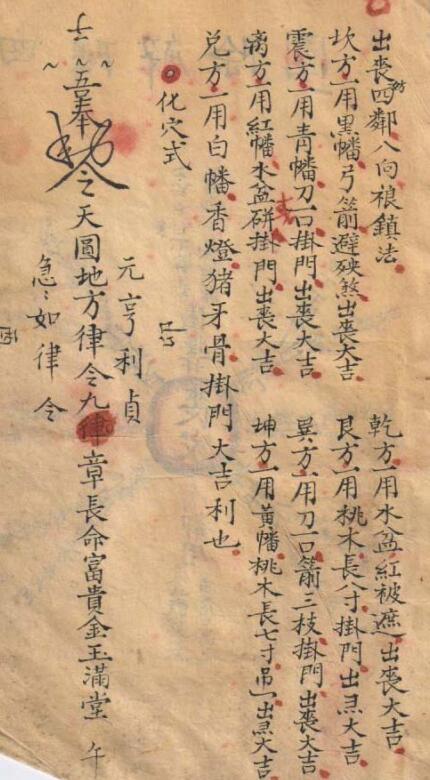 出喪四鄰八向禳鎮法
坎方一用黑幡弓箭避殃煞出喪大吉
震方一用青幡刀一口掛門出喪大吉
离方一用紅幡水盆硑掛門出喪大吉
兌方一用白幡香燈猪牙骨掛門大吉利也
乾方一用水盆紅被遮出喪大吉
艮方一用桃木長八寸掛門出喪大吉
巽方一用刀一口箭三枝掛門出喪大吉
坤方一用黃幡桃木長七寸吊門出喪大吉
化穴式
元亨利貞
五奉
令天圓地方律令九章長命富貴金玉滿堂
急急如律令